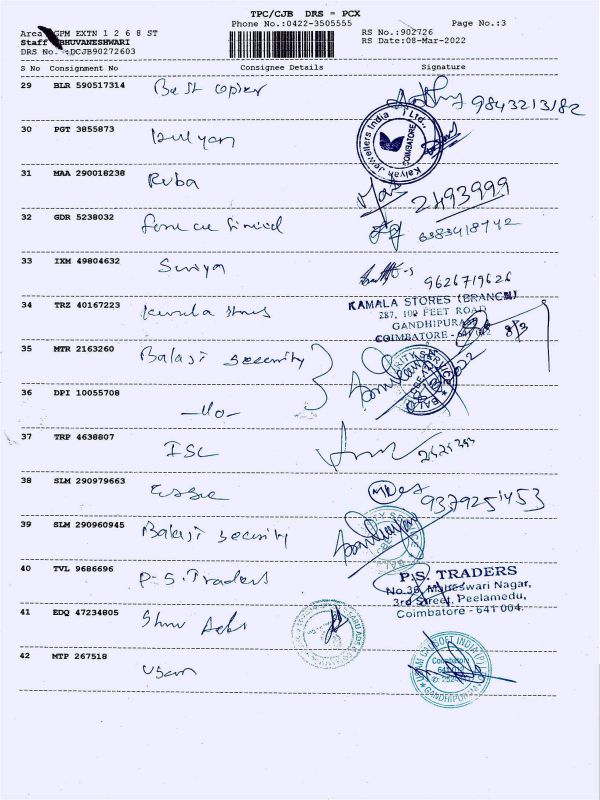 TPC/CJB DRS = PCX
Phone No.:0422-3505555
Page No.:3
Area GPM EXTN 1 2 6 8 ST
RS No.:902726
Staff BHUVANESHWARI
RS Date:08-Mar-2022
DRS No. :DCJB90272603
S No Consignment No Consignee Details Signature
29 BLR 590517314 Best copier 9843213182
30 PGT 3855873
Kalyan Jewellers India Ltd., COIMBATORE
31 MAA 290018238 Ruba 2493999
32 GDR 5238032
33 IXM 49804632 Suriya 9626719626
34 TRZ 40167223
KAMALA STORES (BRANCH)
287, 100 FEET ROAD
GANDHIPURAM
COIMBATORE - 641 012 8/3
35 MTR 2163260 Balaji security
36 DPI 10055708 -do-
37 TRP 4638807 ISC
38 SLM 290979663 9379251453
39 SLM 290960945 Balaji security
40 TVL 9686696 P.S. Traders
P.S. TRADERS
No.36, Maheswari Nagar,
3rd Street, Peelamedu,
Coimbatore - 641 004.
41 EDQ 47234805
42 MTP 267518 Usam
USAM CRISOFT INDIA (P)
Coimbatore
GANDHIPURAM